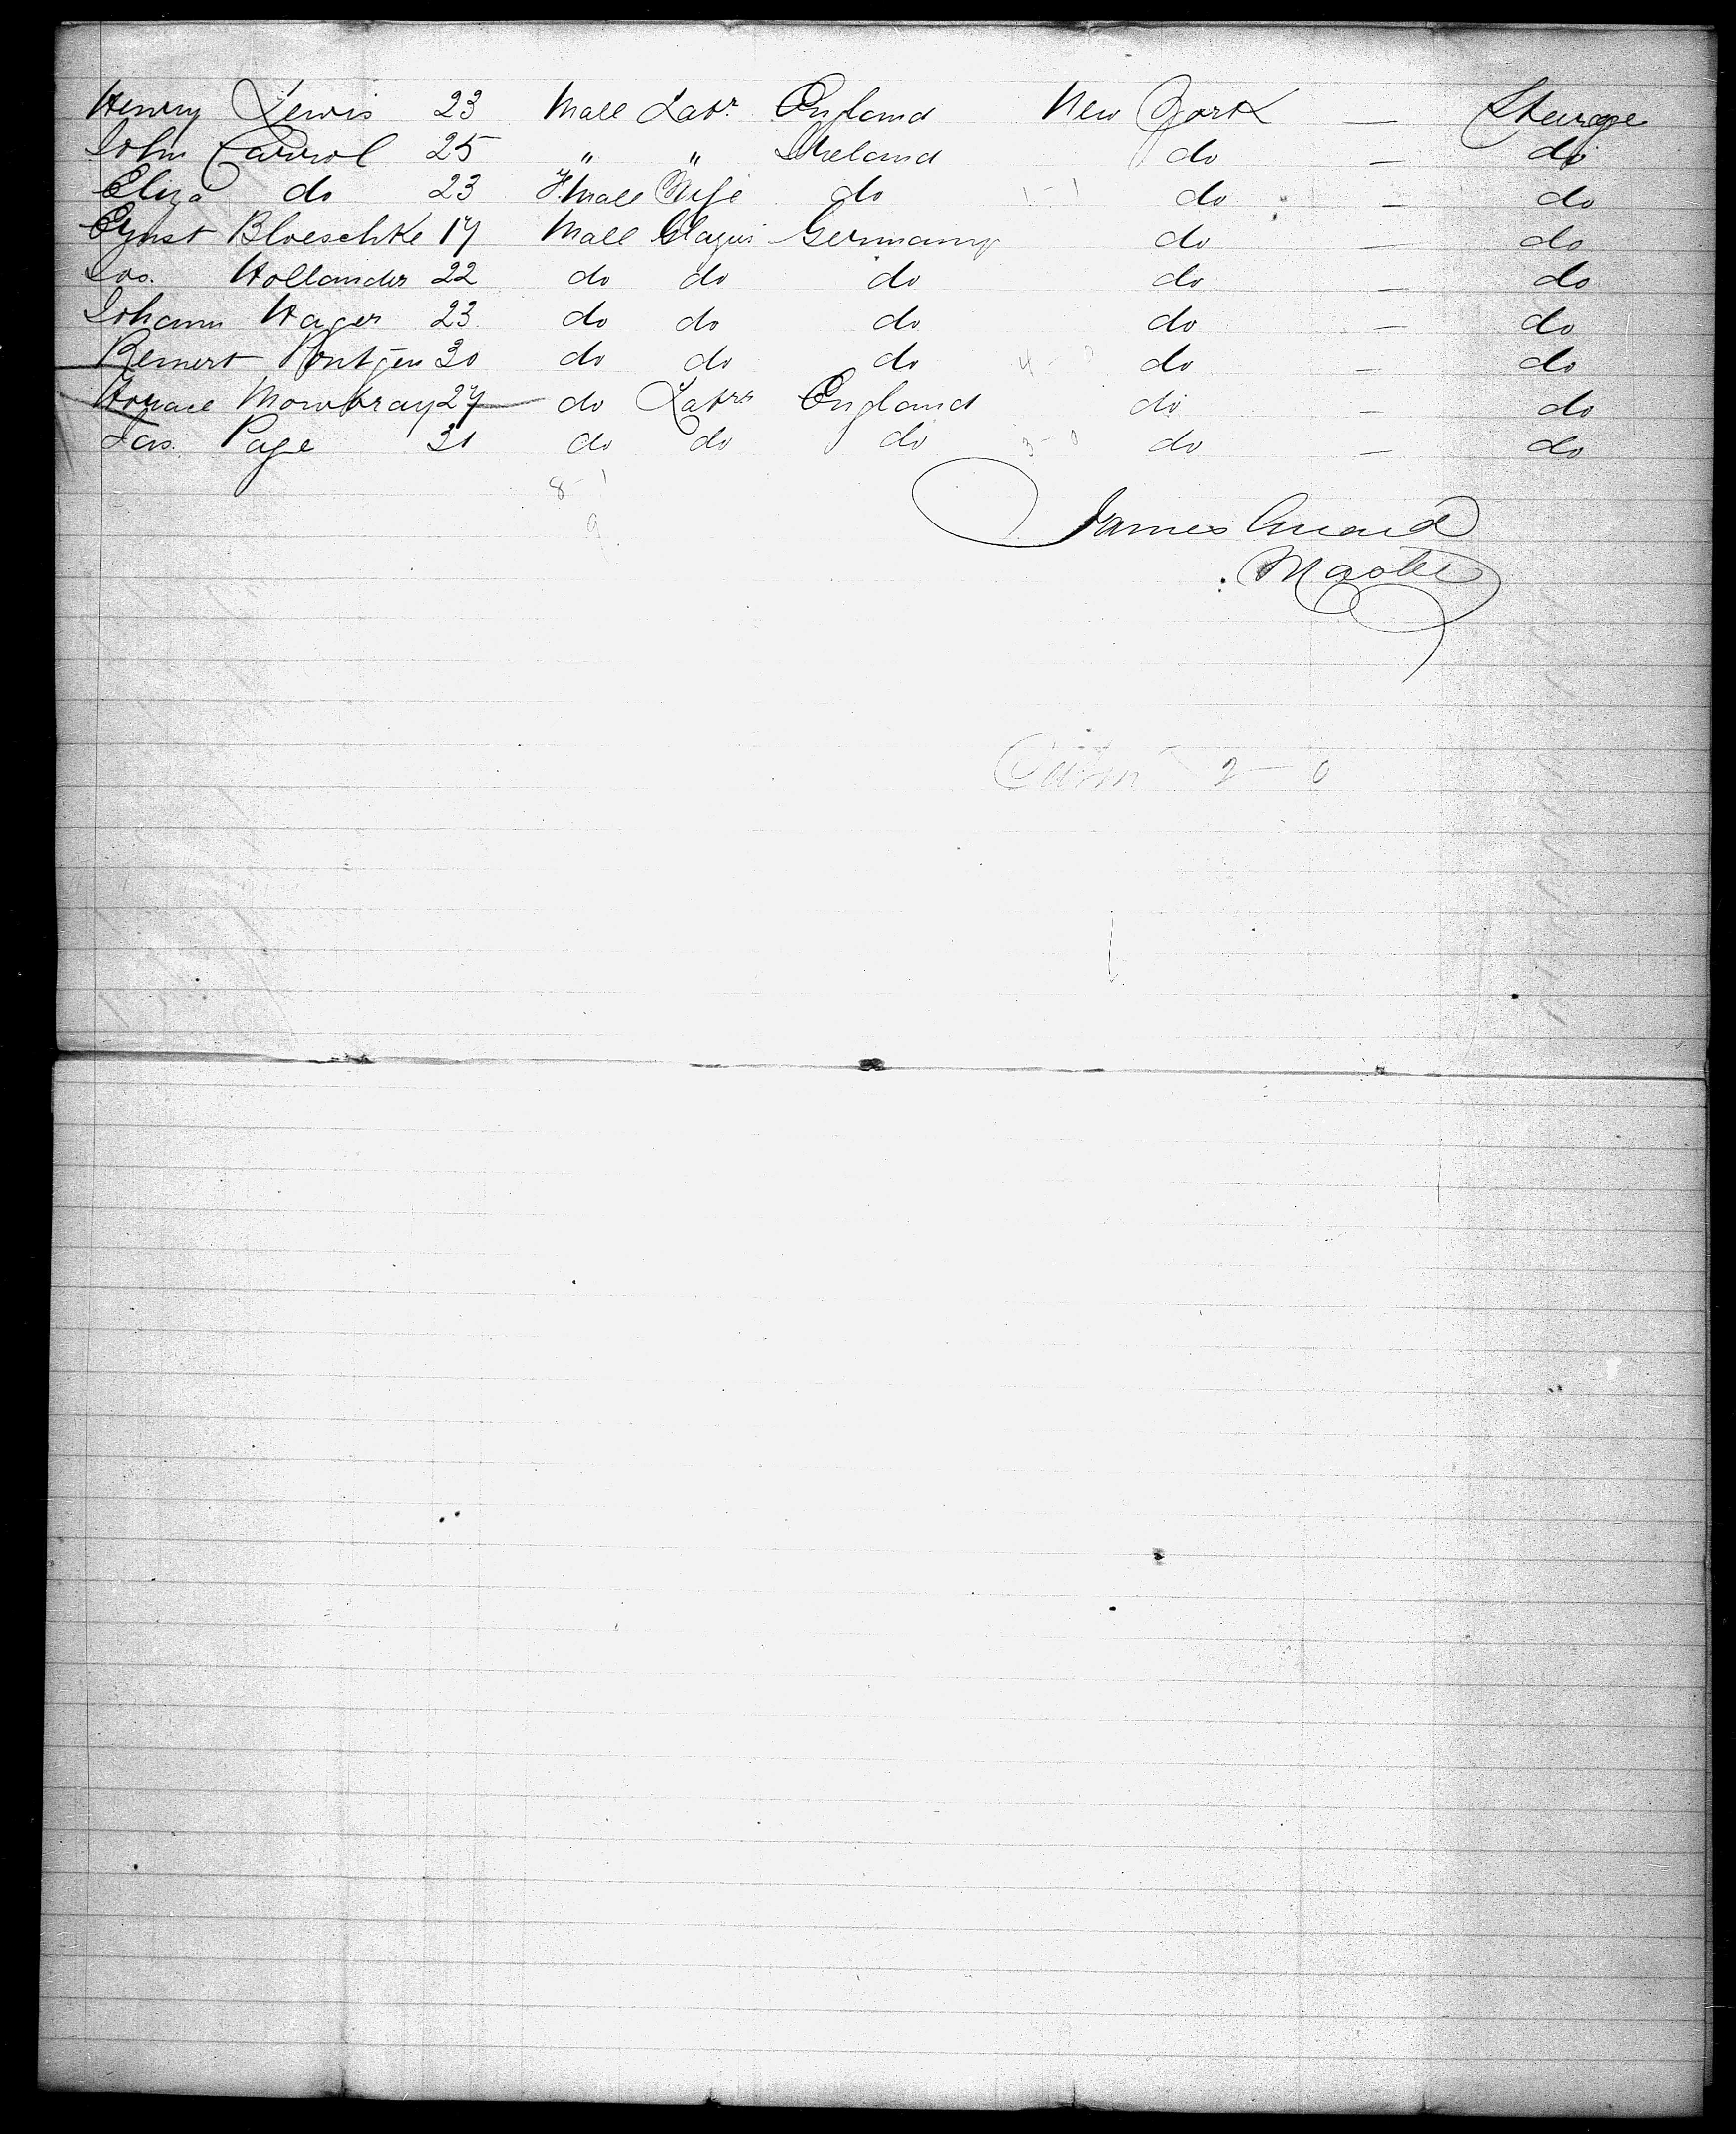 Henry Lewis 23 Male Labr. England New York — Steerage
John Carrol 25 " " Ireland do — do
Eliza do 23 F.male Wife do 1-1 do — do
Ernst Bloeschke 17 Male Germany do — do
Jos. Hollander 22 do do do do — do
Johann Hager 23 do do do do — do
Bernert Rontgen 30 do do do 4-0 do — do
Horace Mowbray 27 do Labrs England do — do
Jas. Page 31 do do do 3-0 do — do
8-1
9
James
Master
2-0